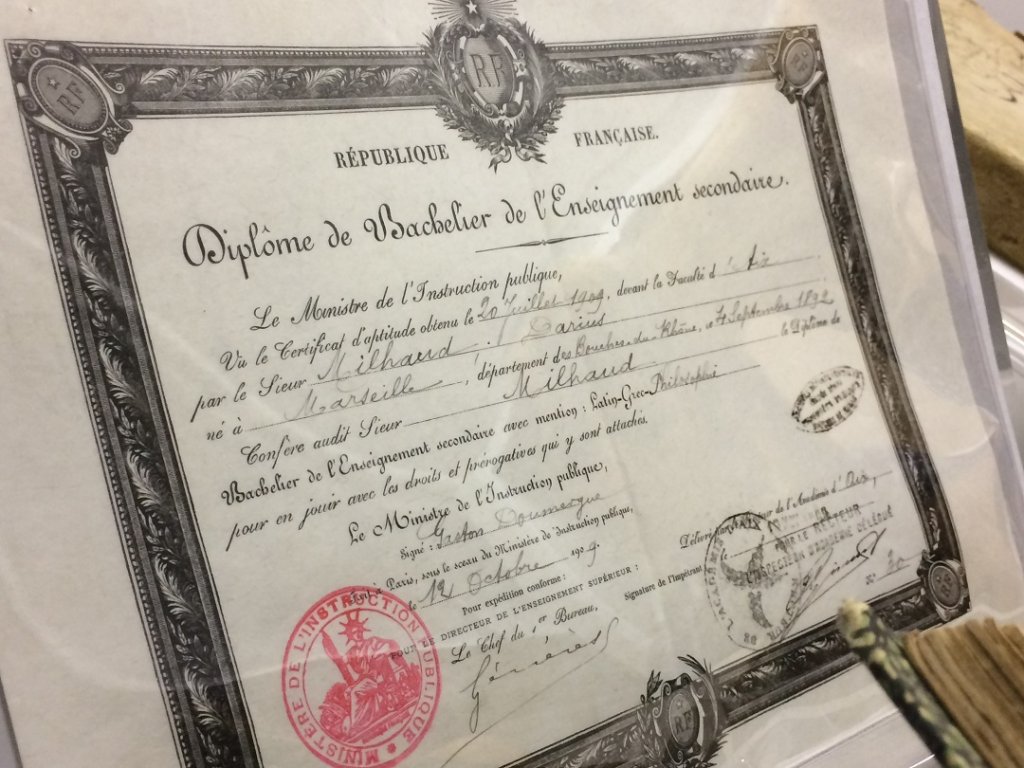 RF
RF
RÉPUBLIQUE FRANÇAISE.
Diplôme de Bachelier de l'Enseignement secondaire.
Le Ministre de l'Instruction publique,
Vu le Certificat d'aptitude obtenu le 20 Juillet 1909, devant la Faculté d'Aix
par le Sieur Milhaud, Darius
né à Marseille, département des Bouches-du-Rhône, le 4 Septembre 1892
Confère audit Sieur Milhaud le Diplôme de
Bachelier de l'Enseignement secondaire avec mention : Latin-Grec-Philosophie
pour en jouir avec les droits et prérogatives qui y sont attachés.
Le Ministre de l'Instruction publique,
Signé : Gaston Doumergue
à Paris, sous le sceau du Ministère de l'Instruction publique,
le 12 Octobre 1909.
Pour expédition conforme :
POUR LE DIRECTEUR DE L'ENSEIGNEMENT SUPÉRIEUR :
Le Chef du 1er Bureau,
Délivré par de l'Académie d'Aix,
POUR LE RECTEUR
L'INSPECTEUR D'ACADÉMIE DÉLÉGUÉ
Signature de l'impétrant
N° 30
MINISTÈRE DE L'INSTRUCTION PUBLIQUE
RF